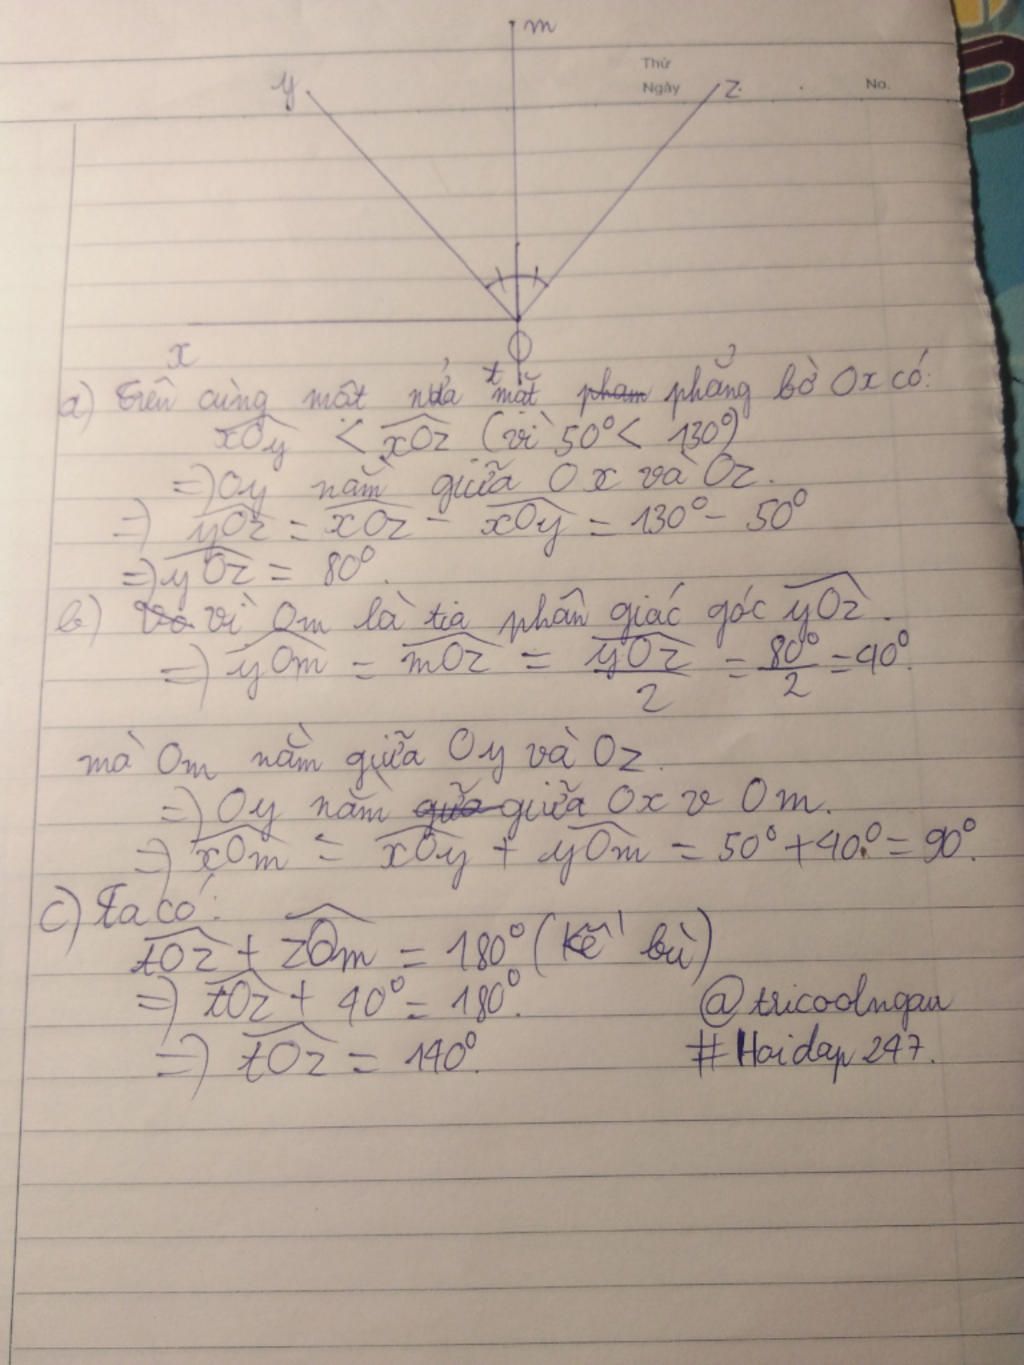 m
Thứ
y
Ngày
z
No.
O
x
t
a) Trên cùng một nửa mặt phẳng bờ Ox có:
xOy < xOz (vì 50° < 130°)
=> Oy nằm giữa Ox và Oz.
=> yOz = xOz - xOy = 130° - 50°
=> yOz = 80°.
b) vì Om là tia phân giác góc yOz.
=> yOm = mOz = yOz/2 = 80°/2 = 40°.
mà Om nằm giữa Oy và Oz.
=> Oy nằm giữa Ox v Om.
=> xOm = xOy + yOm = 50° + 40° = 90°.
c) Ta có:
tOz + zOm = 180° (Kề bù)
=> tOz + 40° = 180°.
@tricoolngau
=> tOz = 140°.
#Hoidap247.